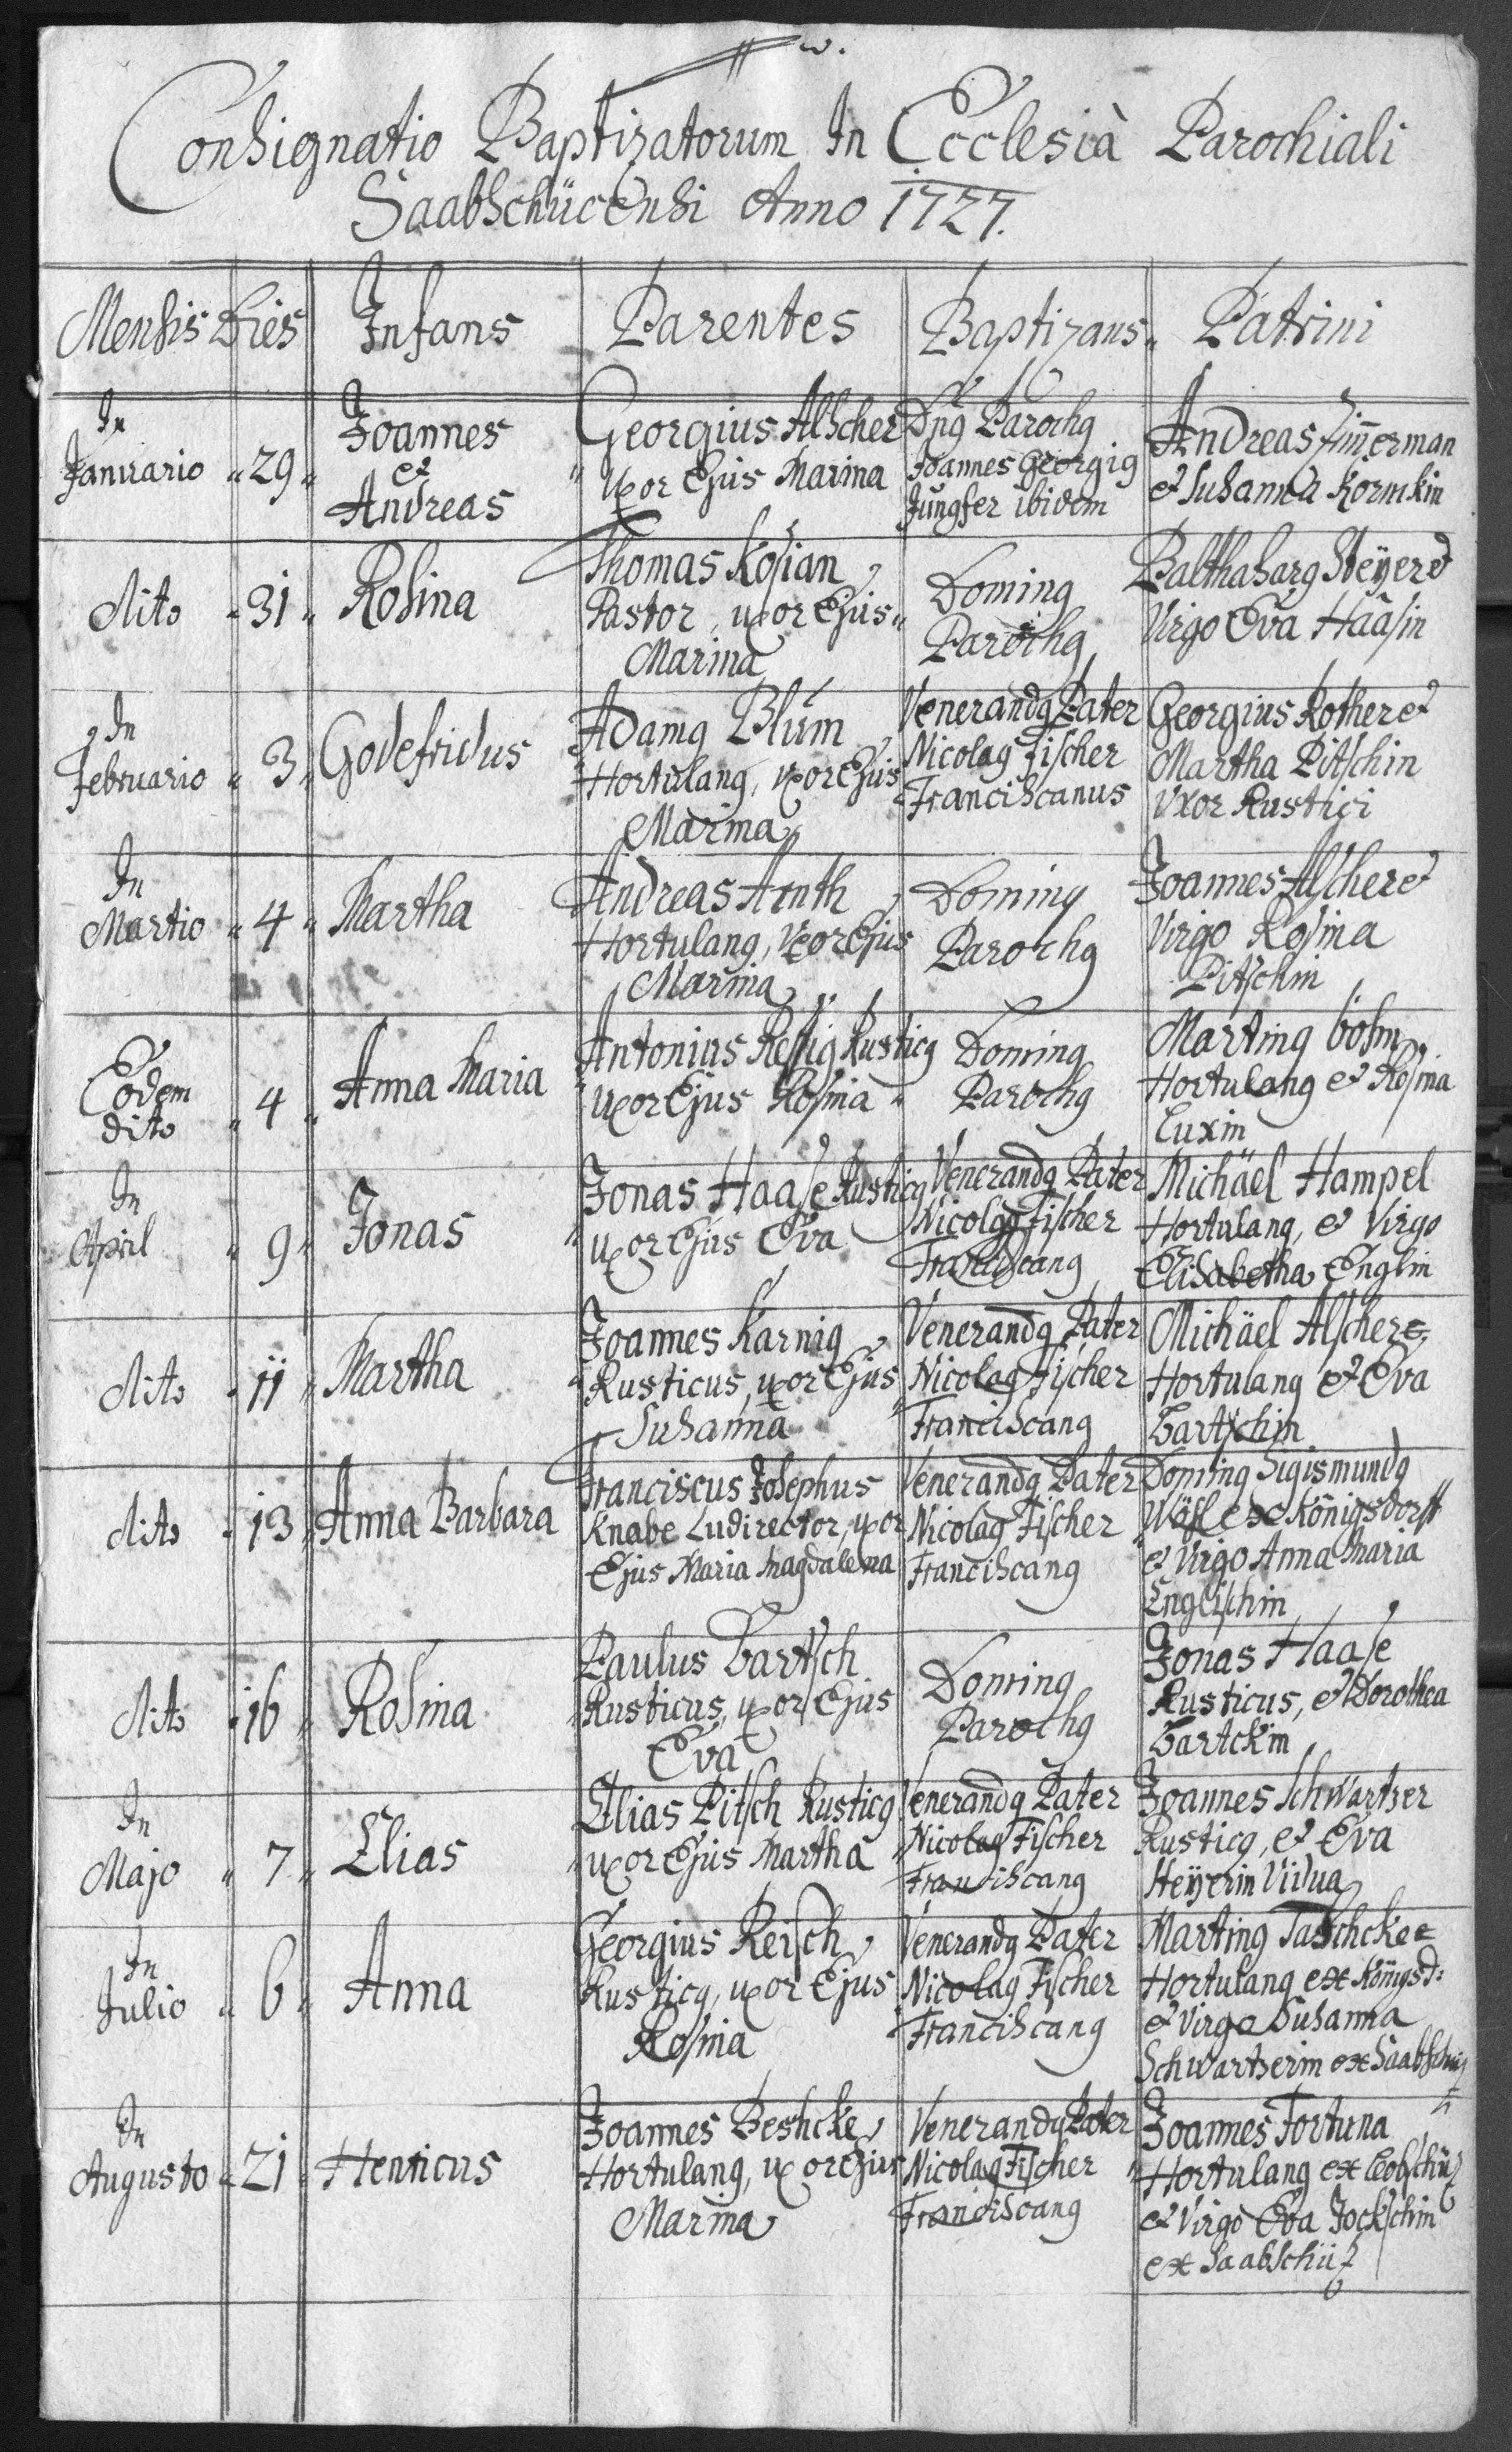 Consignatio Baptizatorum In Ecclesià Parochiali
Saabschücensi Anno 1727.
Mensis Dies Infans Parentes Baptizans Patrini
In
Januario 29 Joannes
et
Andreas
Georgius Alscher
uxor Ejus Marina
Dng Parochg
Joannes Georgig
Jungfer ibidem
Andreas Zim̄erman
et Susanna Kormkin
dito 31 Rosina
Thomas Kosian
Pastor, uxor Ejus
Marina
Doming
Parochg
Balthasarg Steÿer et
Virgo Eva Haasin
In
Februario 3 Godefridus
Adamg Blum
Hortulang, uxor Ejus
Marina
Venerandg Pater
Nicolag Fischer
Franciscanus
Georgius Rother et
Martha Pitschin
Uxor Rustici
In
Martio 4 Martha
Andreas Arnth
Hortulang, Uxor Ejus
Marina
Doming
Parochg
Joannes Alscher et
Virgo Rosina
Pitschin
Eodem
dito 4 Anna Maria
Antonius Ressig Rusticg
uxor Ejus Rosina
Doming
Parochg
Marting böhm
Hortulang et Rosina
Luxin
In
April 9 Jonas
Jonas Haase Rusticg
uxor Ejus Eva
Venerandg Pater
Nicolag Fischer
Franciscang
Michäel Hampel
Hortulang, et Virgo
Elisabetha Englin
dito 11 Martha
Joannes Karnig
Rusticus, uxor Ejus
Susanna
Venerandg Pater
Nicolag Fischer
Franciscang
Michäel Alscher
Hortulang et Eva
Bartschin
dito 13 Anna Barbara
Franciscus Josephus
Knabe Ludirector, uxor
Ejus Maria Magdalena
Venerandg Pater
Nicolag Fischer
Franciscang
Doming Sigismundg
ex Königsdorff
et Virgo Anna Maria
Englischin
dito 16 Rosina
Paulus Bartsch
Rusticus, uxor Ejus
Eva
Doming
Parochg
Jonas Haase
Rusticus, et Dorothea
Bartckin
In
Majo 7 Elias
Elias Pitsch Rusticg
uxor Ejus Martha
Venerandg Pater
Nicolag Fischer
Franciscang
Joannes Schwartzer
Rusticg, et Eva
Steÿerin Vidua
In
Julio 6 Anna
Georgius Reisch
Rusticg, uxor Ejus
Rosina
Venerandg Pater
Nicolag Fischer
Franciscang
Marting Taschcke
Hortulang ex Königsd:
et Virgo Susanna
Schwartzerin ex Saabschüz
In
Augusto 21 Henricus
Joannes Beshcke
Hortulang, uxor Ejus
Marina
Venerandg Pater
Nicolag Fischer
Franciscang
Joannes Fortuna
Hortulang ex Leobschüz
et Virgo Eva Jockschin
ex Saabschüz